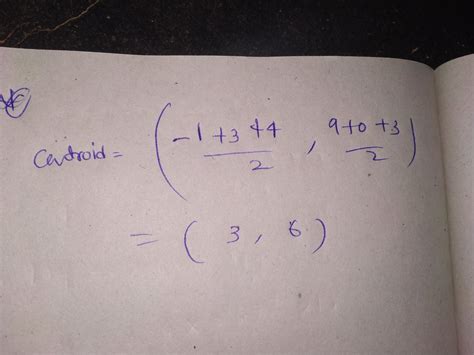 Centroid = ( -1+3+4 / 2 , 9+0+3 / 2 )
= ( 3 , 6 )